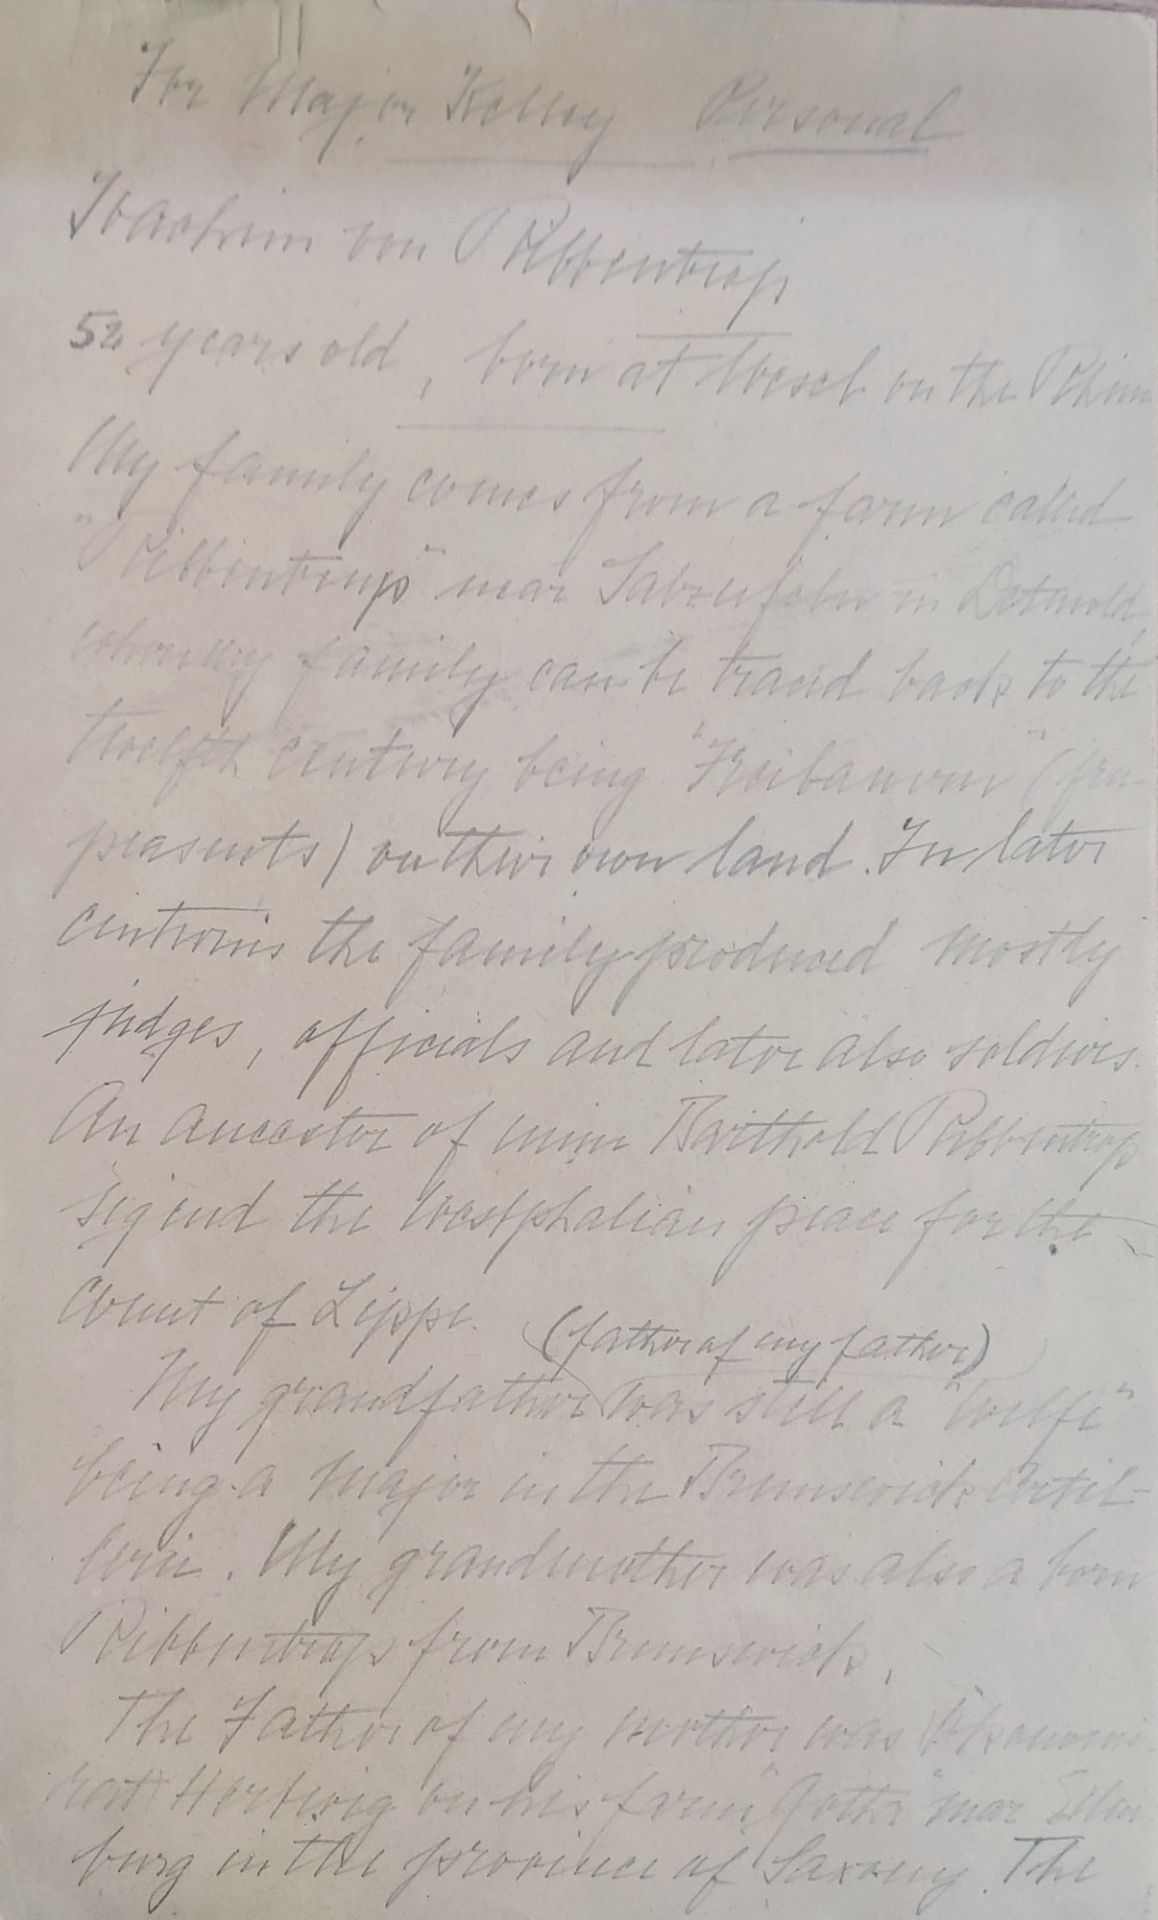 For Major Kelley Personal
Joachim von Ribbentrop
52 years old, born at Wesel on the Rhine
My family comes from a farm called
"Ribbentrup" near Salzuflen in Detmold,
where my family can be traced back to the
twelfth century being "Freibauern" (free
peasents) on their own land. In later
centuries the family produced mostly
judges, officials and later also soldiers.
An ancestor of mine Barthold Ribbentrop
sigend the Westphalian peace for the
Count of Lippe.
(father of my father)
My grandfather was still a "Welfe"
being a Major in the Brunswick Artil-
lerie. My grandmother was also a born
Ribbentrop from Brunswick.
The Father of my mother was Ökonomie-
rat Hertwig on his farm "Gotha" near Eilen
burg in the province of Saxony. The